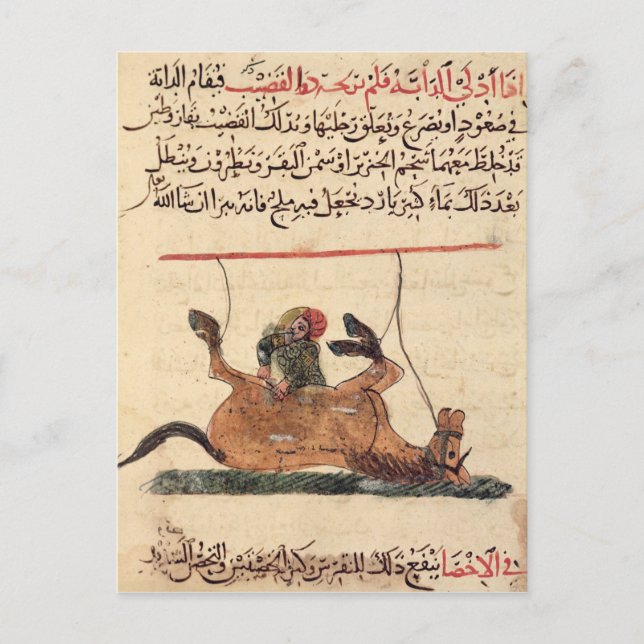 اذا أدلي الدابة فلم يرجعه دوا القضيب فيقام الدابة
في صعود او يصرع وتعلق رجليها ويدلك القضيب بقار وطين
قد خلط معهما شحم الخنزير او سمن البقر ونطرون وينطل
بعد ذلك بماء كثير بارد يجعل فيه ملح فانه يبرا ان شا الله تعالى
في الاخصا ينفع ذلك للنقرس وكبر الخصيتين